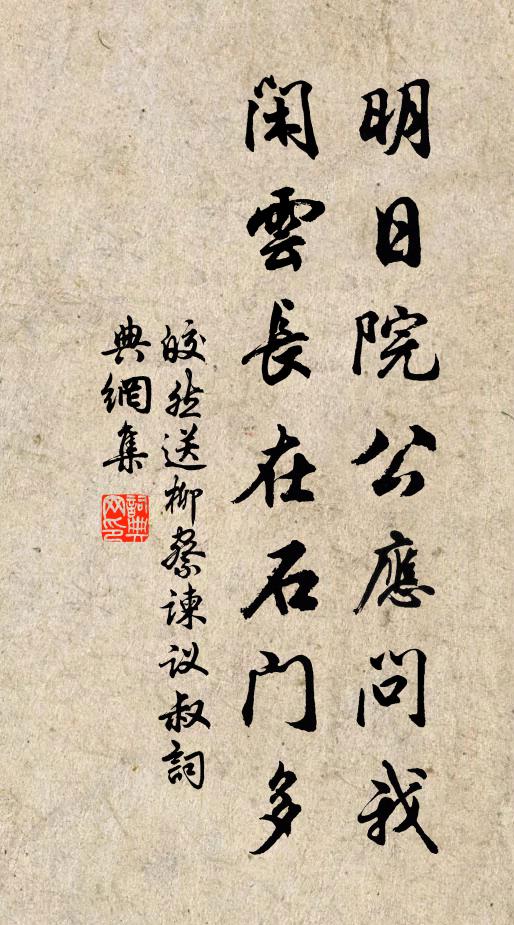 明日院公應問我
閑雲長在石門多
皎然送柳察諫议叔詞
典網集
詞典網印